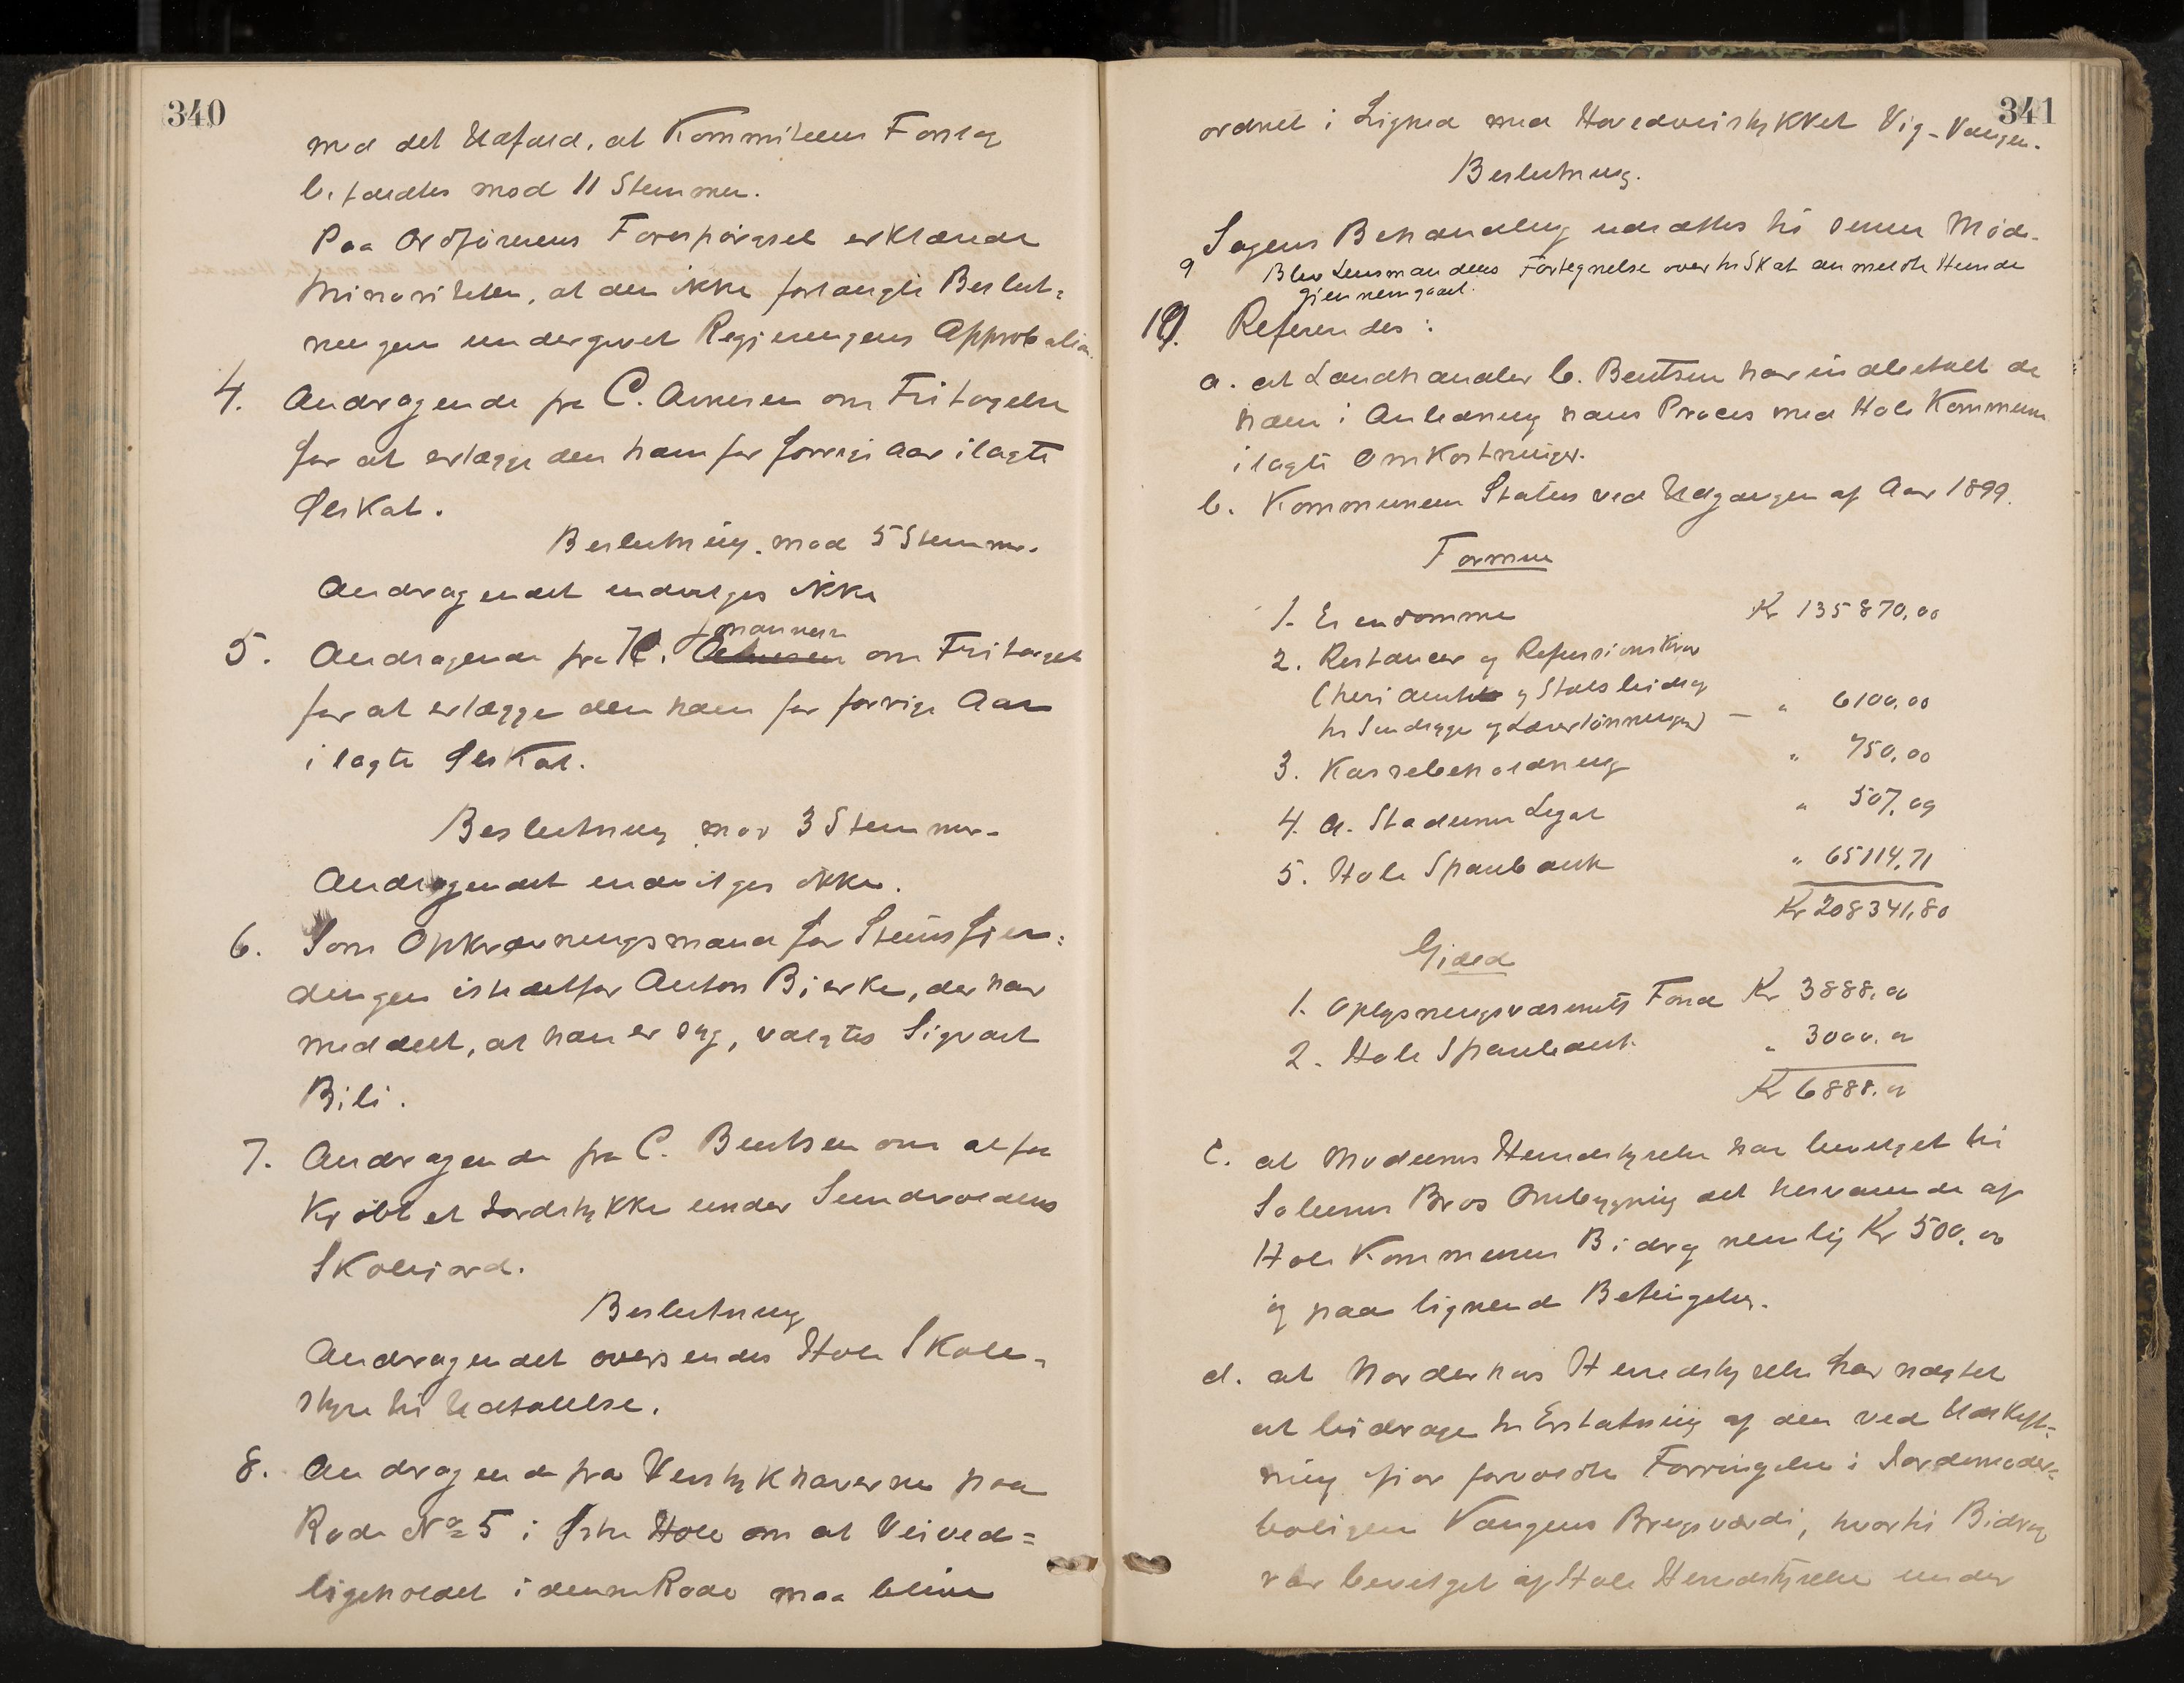 340
med det Udfald, at Kommiteens Forslag
b. fældtes mod 11 Stemmer.
Paa Ordførerens Forespørgsel erklærede
Minoriteten, at den ikke forlangte Beslut=
ningen undergivet Regjeringens Approbation.
4. Andragende fra C. Arnesen om Fritagelse
for at erlægge den ham for forrige Aar ilagte
Skat.
Beslutning. mod 5 Stemmer.
Andragendet indvilges ikke
Johannesen
5. Andragende fra K. Arnesen om Fritaget
for at erlægge den ham for forrige Aar
ilagte Skat.
Beslutning mod 3 Stemmer.
Andragendet indvilges ikke.
6. Som Opkrævningsmand for Steinsfjer=
dingen istedetfor Anton Bjerke, der har
meddelt, at han er syg, valgtes Sigvart
Bili.
7. Andragende fra C. Bentsen om at faa
Kjøbt et Jordstykke under Sundvoldens
Skolejord.
Beslutning
Andragendet oversendes Hole Skole=
styre til Udtalelse.
8. Andragende fra Veistykhaverne paa
Rode No 5 i Østre Hole om at Veived=
ligeholdet i denne Rode maa blive
341
ordnet i Lighed med Hovedveistykket Vig-Vangen.
Beslutning.
Sagens Behandling udsættes til senere Møde.
9 Blev Lensmandens Fortegnelse over til Skat anmeldte Hunde
gjennemgaaet.
10. Refereredes:
a. at Landhandler C. Bentsen har indbetalt de
ham i Anledning hans Proces med Hole Kommune
ilagte Omkostninger.
b. Kommunens Status ved Udgangen af Aar 1899.
Formue
1. Eiendomme Kr 135870,00
2. Restancer og Refusionskrav
(heri Amts og Statsbidrag
til Sindsyge og Lærerlønninger) — " 6100,00
3. Kassebeholdning " 750,00
4. A. Stadeums Legat " 507,09
5. Hole Sparebank " 65114,71
Kr 208341,80
Gjæld
1. Oplysningsvæsenets Fond Kr 3888.00
2. Hole Sparebank " 3000.00
Kr 6888.00
c. at Modums Herredstyrelse har bevilget til
Solums Bros Ombygning det hersammede af
Hole Kommunes Bidrag nemlig Kr 500,00
og paa lignende Betingelser.
d. at Norderhovs Herredstyrelse har nægtet
at bidrage til Erstatning af den ved Udskift=
ning ifjor forvoldte Forringelse i Jordemoder=
boligen Vangens Brugsværdi, hvortil Bidrag
var bevilget af Hole Herredstyrelse under